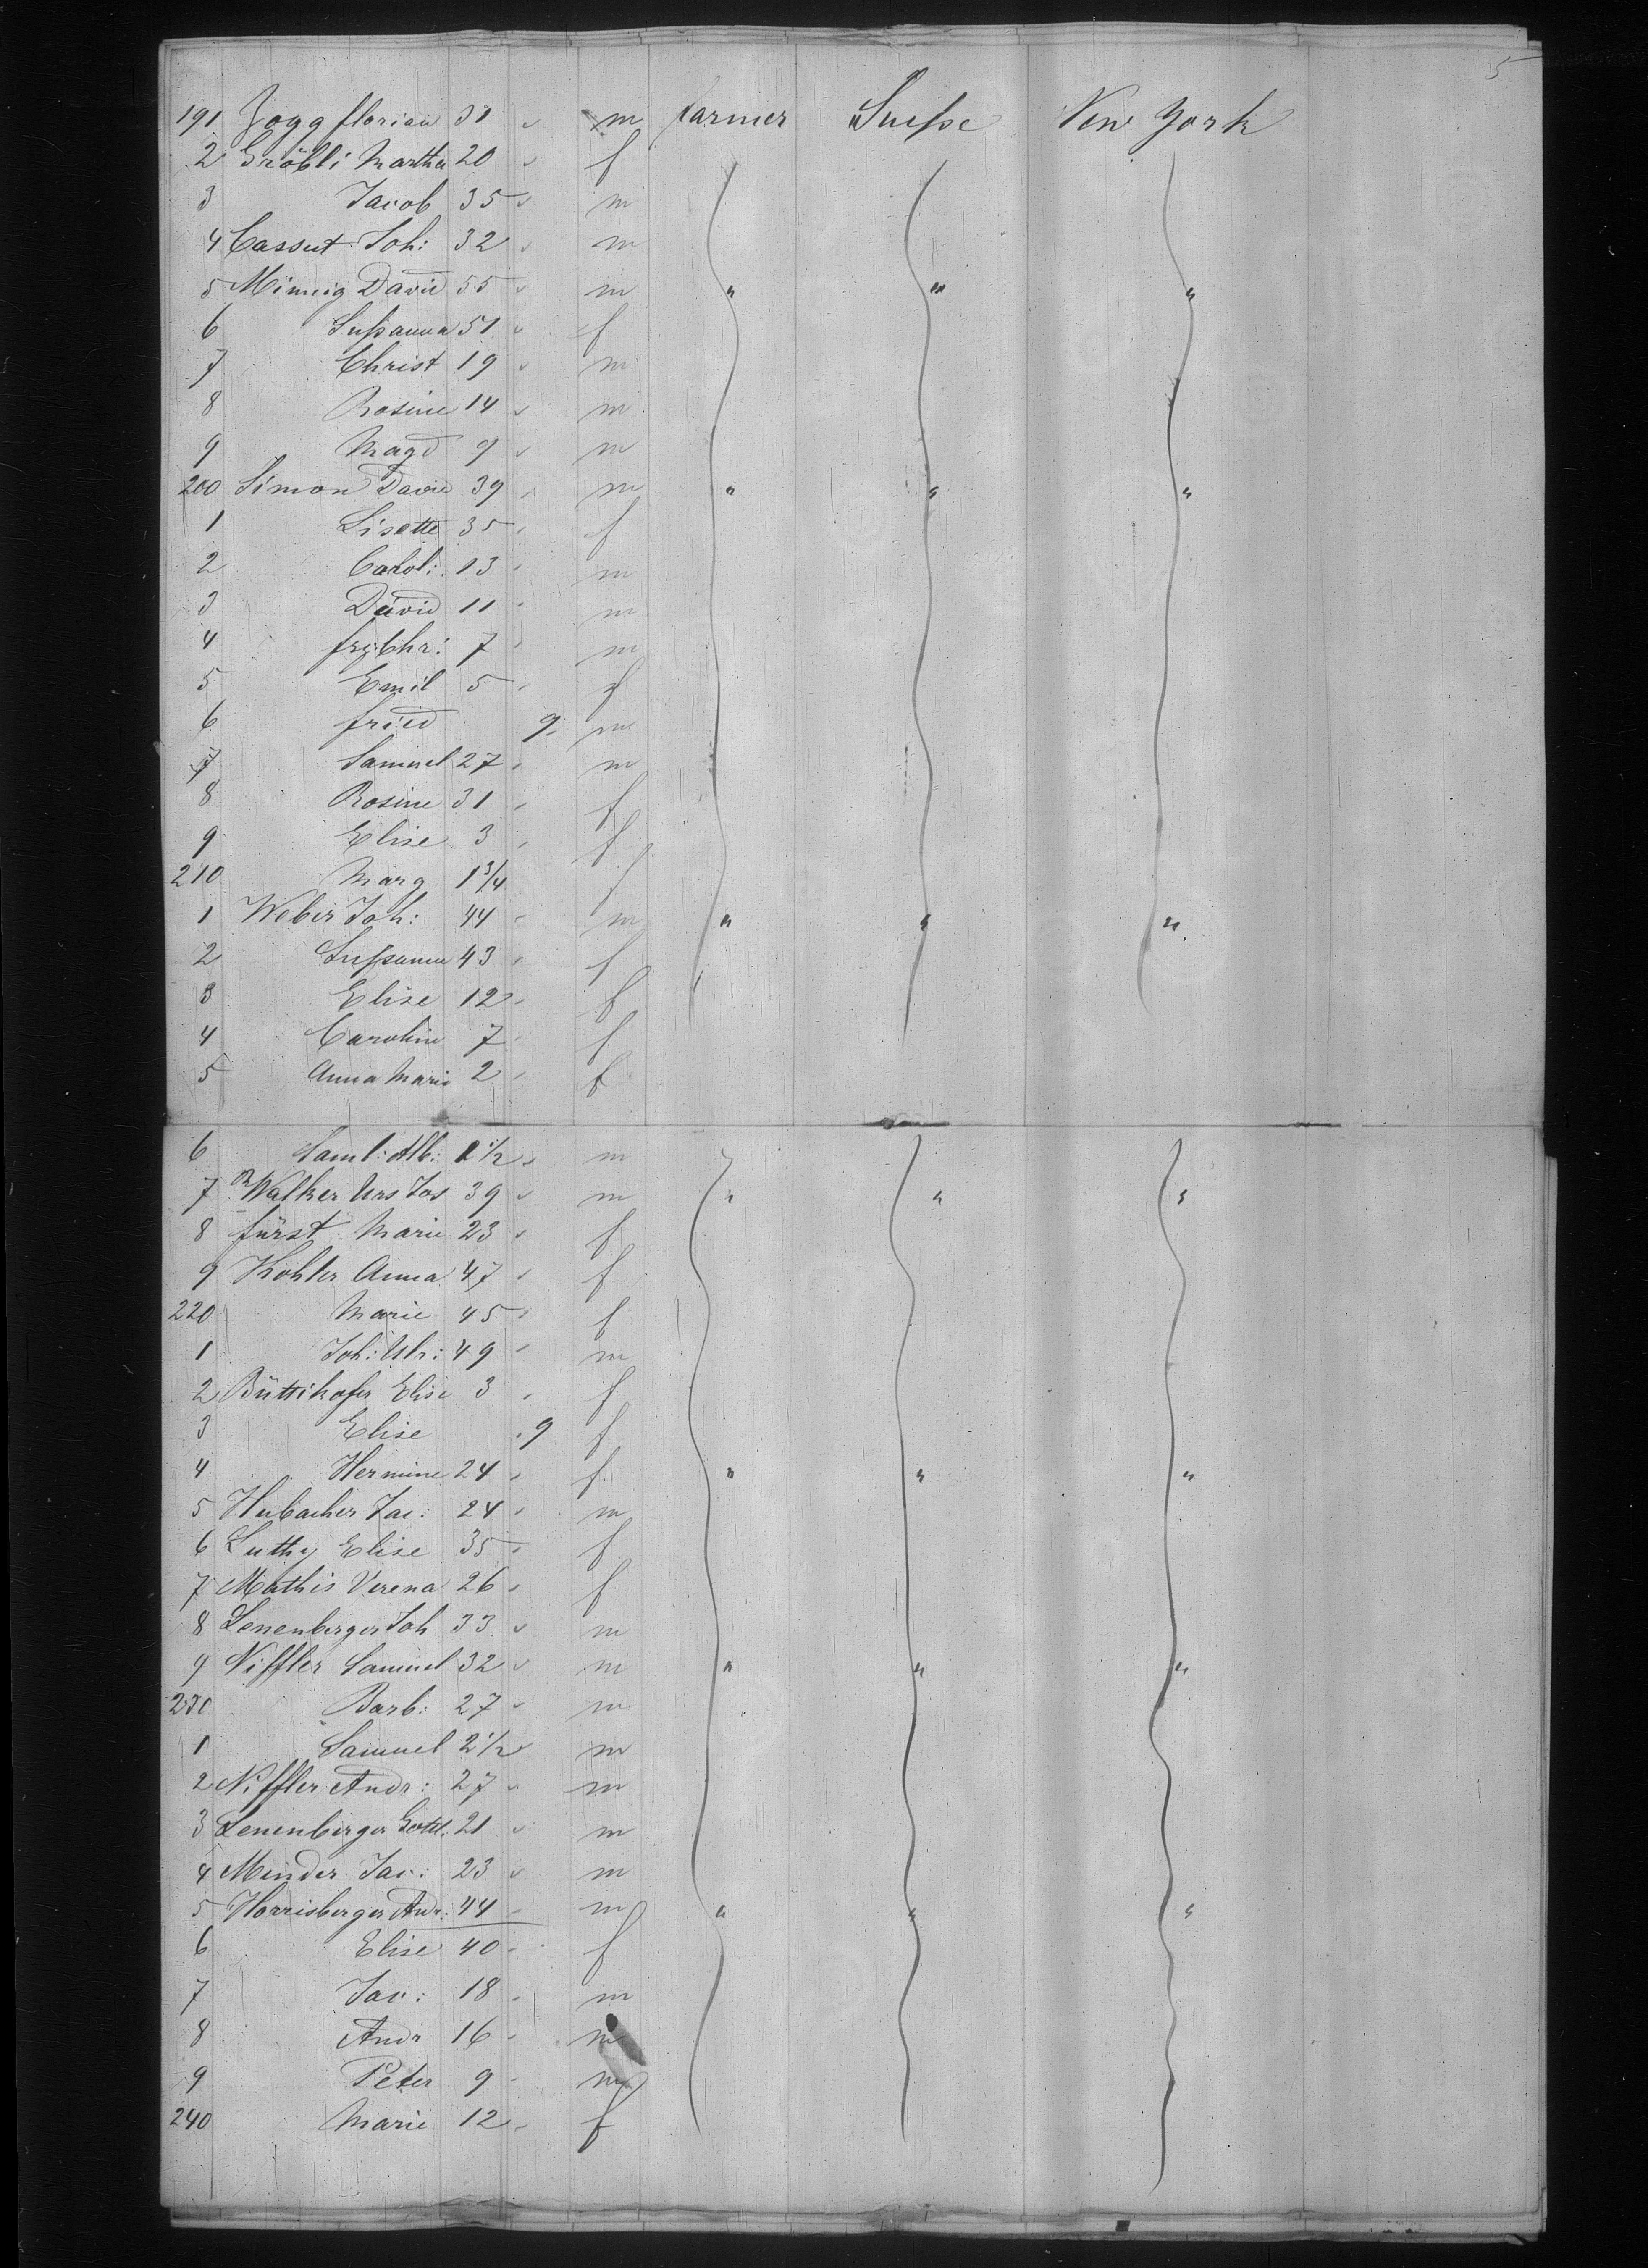 5
191 Jogg florian 31 m farmer Suisse New York
2 Gröbli Martha 20 f
3 Jacob 35 m
4 Cassut Joh: 32 m
5 Minnig David 55 m " " "
6 Sussanna 51 f
7 Christ 19 m
8 Rosine 14 m
9 Magd 9 m
200 Simon David 39 m " " "
1 Lisette 35 f
2 Carol: 13 m
3 David 11 m
4 Chr: 7 m
5 Emil 5 f
6 fried 9 m
7 Samuel 27 m
8 Rosine 31 f
9 Elise 3 f
210 Marg 1 3/4 f
1 Weber Joh: 44 m " " "
2 Sussanna 43 f
3 Elise 12 f
4 Carolin 7 f
5 Anna Marie 2 f
6 Saml: Alb: 1/2 m
7 Walker Urs Jos 39 m " " "
8 fürst Marie 23 f
9 Kohler Anna 47 f
220 Marie 45 f
1 Joh: Ulr: 49 m
2 Büttikofer Elise 3 f
3 Elise 9 f
4 Hermine 24 f " " "
5 Hubacher Jac: 24 m
6 Luthy Elise 35 f
7 Mathis Verena 26 f
8 Leuenberger Joh 33 m
9 Niffler Samuel 32 m " " "
230 Barb: 27 m
1 Samuel 2 1/2 m
2 Niffler Andr: 27 m
3 Leuenberger Gottl: 21 m
4 Minder Jac: 23 m
5 Horrisberger Andr: 44 m " " "
6 Elise 40 f
7 Jac: 18 m
8 Andr 16 m
9 Peter 9 m
240 Marie 12 f